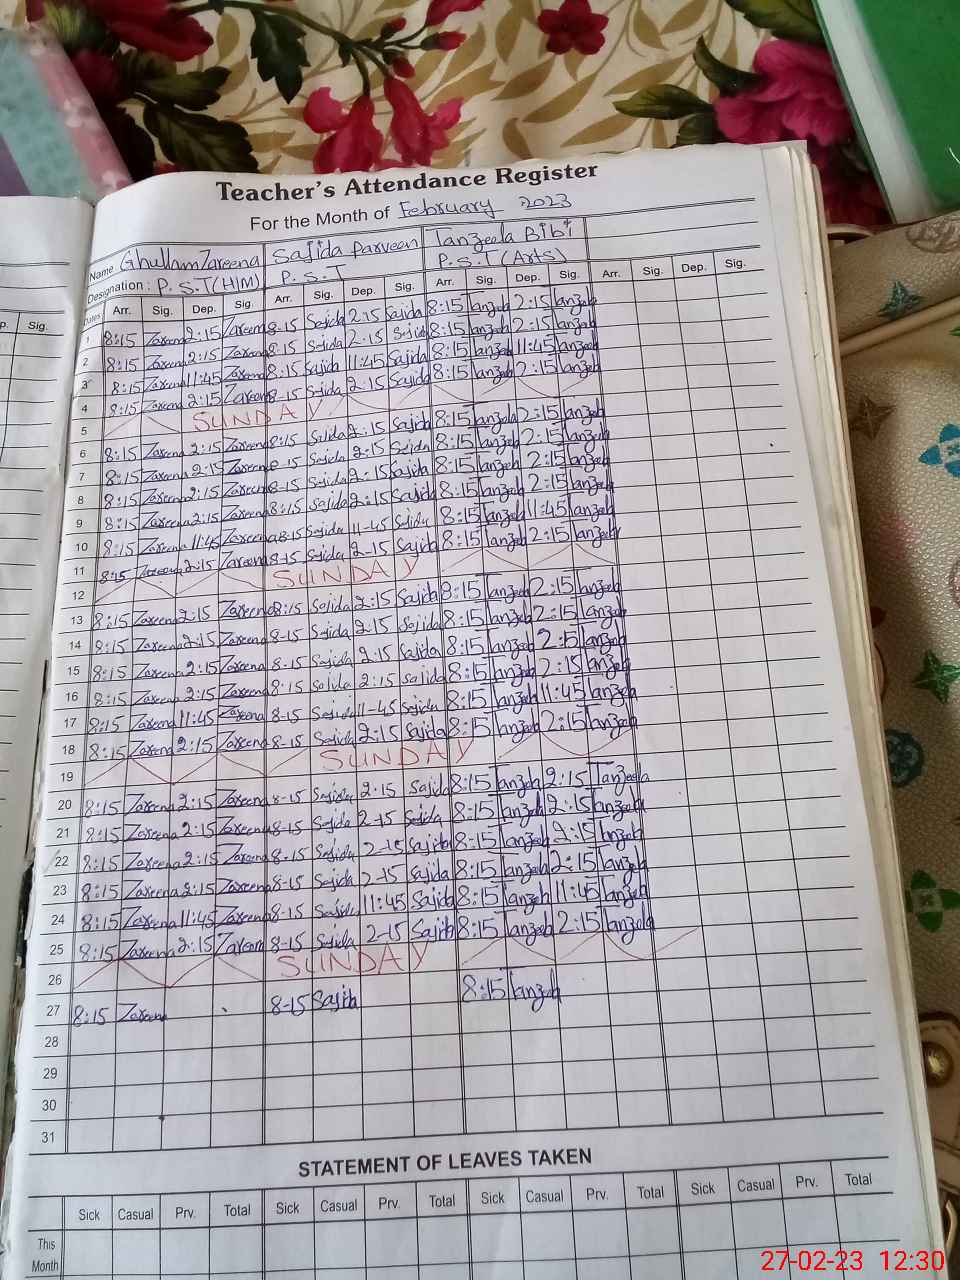 Teacher's Attendance Register
For the Month of February 2023
Name Ghullam Zareena Sajida Parveen Tanzeela Bibi
Designation: P.S.T(H/M) P.S.T P.S.T(Arts)
Dates Arr. Sig. Dep. Sig. Arr. Sig. Dep. Sig. Arr. Sig. Dep. Sig. Arr. Sig. Dep. Sig.
p. Sig.
1 8:15 Zareena 2:15 Zareena 8-15 Sajida 2:15 Sajida 8:15 Tanzeela 2:15 Tanzeela
2 8:15 Zareena 2:15 Zareena 8-15 Sajida 2-15 Sajida 8:15 Tanzeela 2:15 Tanzeela
3 8:15 Zareena 11:45 Zareena 8:15 Sajida 11:45 Sajida 8:15 Tanzeela 11:45 Tanzeela
4 8:15 Zareena 2:15 Zareena 8-15 Sajida 2-15 Sajida 8:15 Tanzeela 2:15 Tanzeela
5 SUNDAY
6 8:15 Zareena 2:15 Zareena 8:15 Sajida 2:15 Sajida 8:15 Tanzeela 2:15 Tanzeela
7 8:15 Zareena 2:15 Zareena 8-15 Sajida 2:15 Sajida 8:15 Tanzeela 2:15 Tanzeela
8 8:15 Zareena 2:15 Zareena 8-15 Sajida 2:15 Sajida 8:15 Tanzeela 2:15 Tanzeela
9 8:15 Zareena 2:15 Zareena 8:15 Sajida 2:15 Sajida 8:15 Tanzeela 2:15 Tanzeela
10 8:15 Zareena 11:45 Zareena 8:15 Sajida 11-45 Sajida 8:15 Tanzeela 11:45 Tanzeela
11 8:15 Zareena 2:15 Zareena 8-15 Sajida 2-15 Sajida 8:15 Tanzeela 2:15 Tanzeela
12 SUNDAY
13 8:15 Zareena 2:15 Zareena 8:15 Sajida 2:15 Sajida 8:15 Tanzeela 2:15 Tanzeela
14 8:15 Zareena 2:15 Zareena 8-15 Sajida 2:15 Sajida 8:15 Tanzeela 2:15 Tanzeela
15 8:15 Zareena 2:15 Zareena 8-15 Sajida 2:15 Sajida 8:15 Tanzeela 2:15 Tanzeela
16 8:15 Zareena 2:15 Zareena 8-15 Sajida 2:15 Sajida 8:15 Tanzeela 2:15 Tanzeela
17 8:15 Zareena 11:45 Zareena 8-15 Sajida 11-45 Sajida 8:15 Tanzeela 11:45 Tanzeela
18 8:15 Zareena 2:15 Zareena 8-15 Sajida 2:15 Sajida 8:15 Tanzeela 2:15 Tanzeela
19 SUNDAY
20 8:15 Zareena 2:15 Zareena 8-15 Sajida 2:15 Sajida 8:15 Tanzeela 2:15 Tanzeela
21 8:15 Zareena 2:15 Zareena 8-15 Sajida 2-15 Sajida 8:15 Tanzeela 2:15 Tanzeela
22 8:15 Zareena 2:15 Zareena 8-15 Sajida 2-15 Sajida 8:15 Tanzeela 2:15 Tanzeela
23 8:15 Zareena 2:15 Zareena 8-15 Sajida 2-15 Sajida 8:15 Tanzeela 2:15 Tanzeela
24 8:15 Zareena 11:45 Zareena 8-15 Sajida 11:45 Sajida 8:15 Tanzeela 11:45 Tanzeela
25 8:15 Zareena 2:15 Zareena 8-15 Sajida 2-15 Sajida 8:15 Tanzeela 2:15 Tanzeela
26 SUNDAY
27 8:15 Zareena 8-15 Sajida 8:15 Tanzeela
28
29
30
31
STATEMENT OF LEAVES TAKEN
Sick Casual Prv. Total Sick Casual Prv. Total Sick Casual Prv. Total Sick Casual Prv. Total
This
Month
27-02-23 12:30